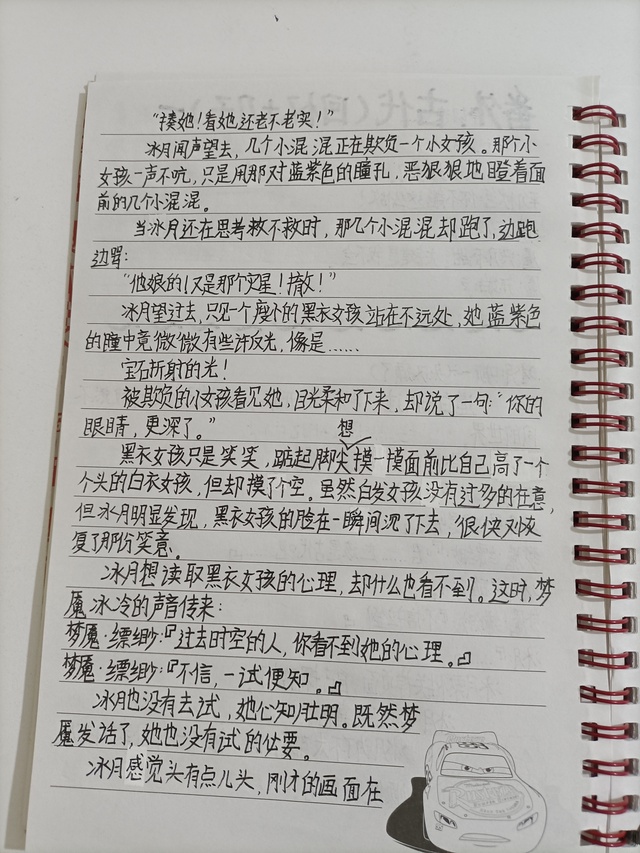 “揍她！看她还老不老实！”
冰月闻声望去，几个小混混正在欺负一个小女孩。那个小
女孩一声不吭，只是用那对蓝紫色的瞳孔，恶狠狠地瞪着面
前的几个小混混。
当冰月还在思考救不救时，那几个小混混却跑了，边跑
边骂：
“他娘的！又是那个灾星！撤！”
冰月望过去，只见一个瘦小的黑衣女孩站在不远处，她蓝紫色
的瞳中竟微微有些许反光，像是……
宝石折射的光！
被欺负的小女孩看见她，目光柔和了下来，却说了一句：“你的
眼睛，更深了。”
黑衣女孩只是笑笑，踮起脚尖想摸一摸面前比自己高了一个
个头的白衣女孩，但却摸了个空。虽然白发女孩没有过多的在意，
但冰月明显发现，黑衣女孩的脸在一瞬间沉了下去，很快又恢
复了那份笑意。
冰月想读取黑衣女孩的心理，却什么也看不到。这时，梦
魇冰冷的声音传来：
梦魇·缥缈：『过去时空的人，你看不到她的心理。』
梦魇·缥缈：『不信，一试便知。』
冰月也没有去试，她心知肚明。既然梦
魇发话了，她也没有试的必要。
冰月感觉头有点儿头，刚才的画面在